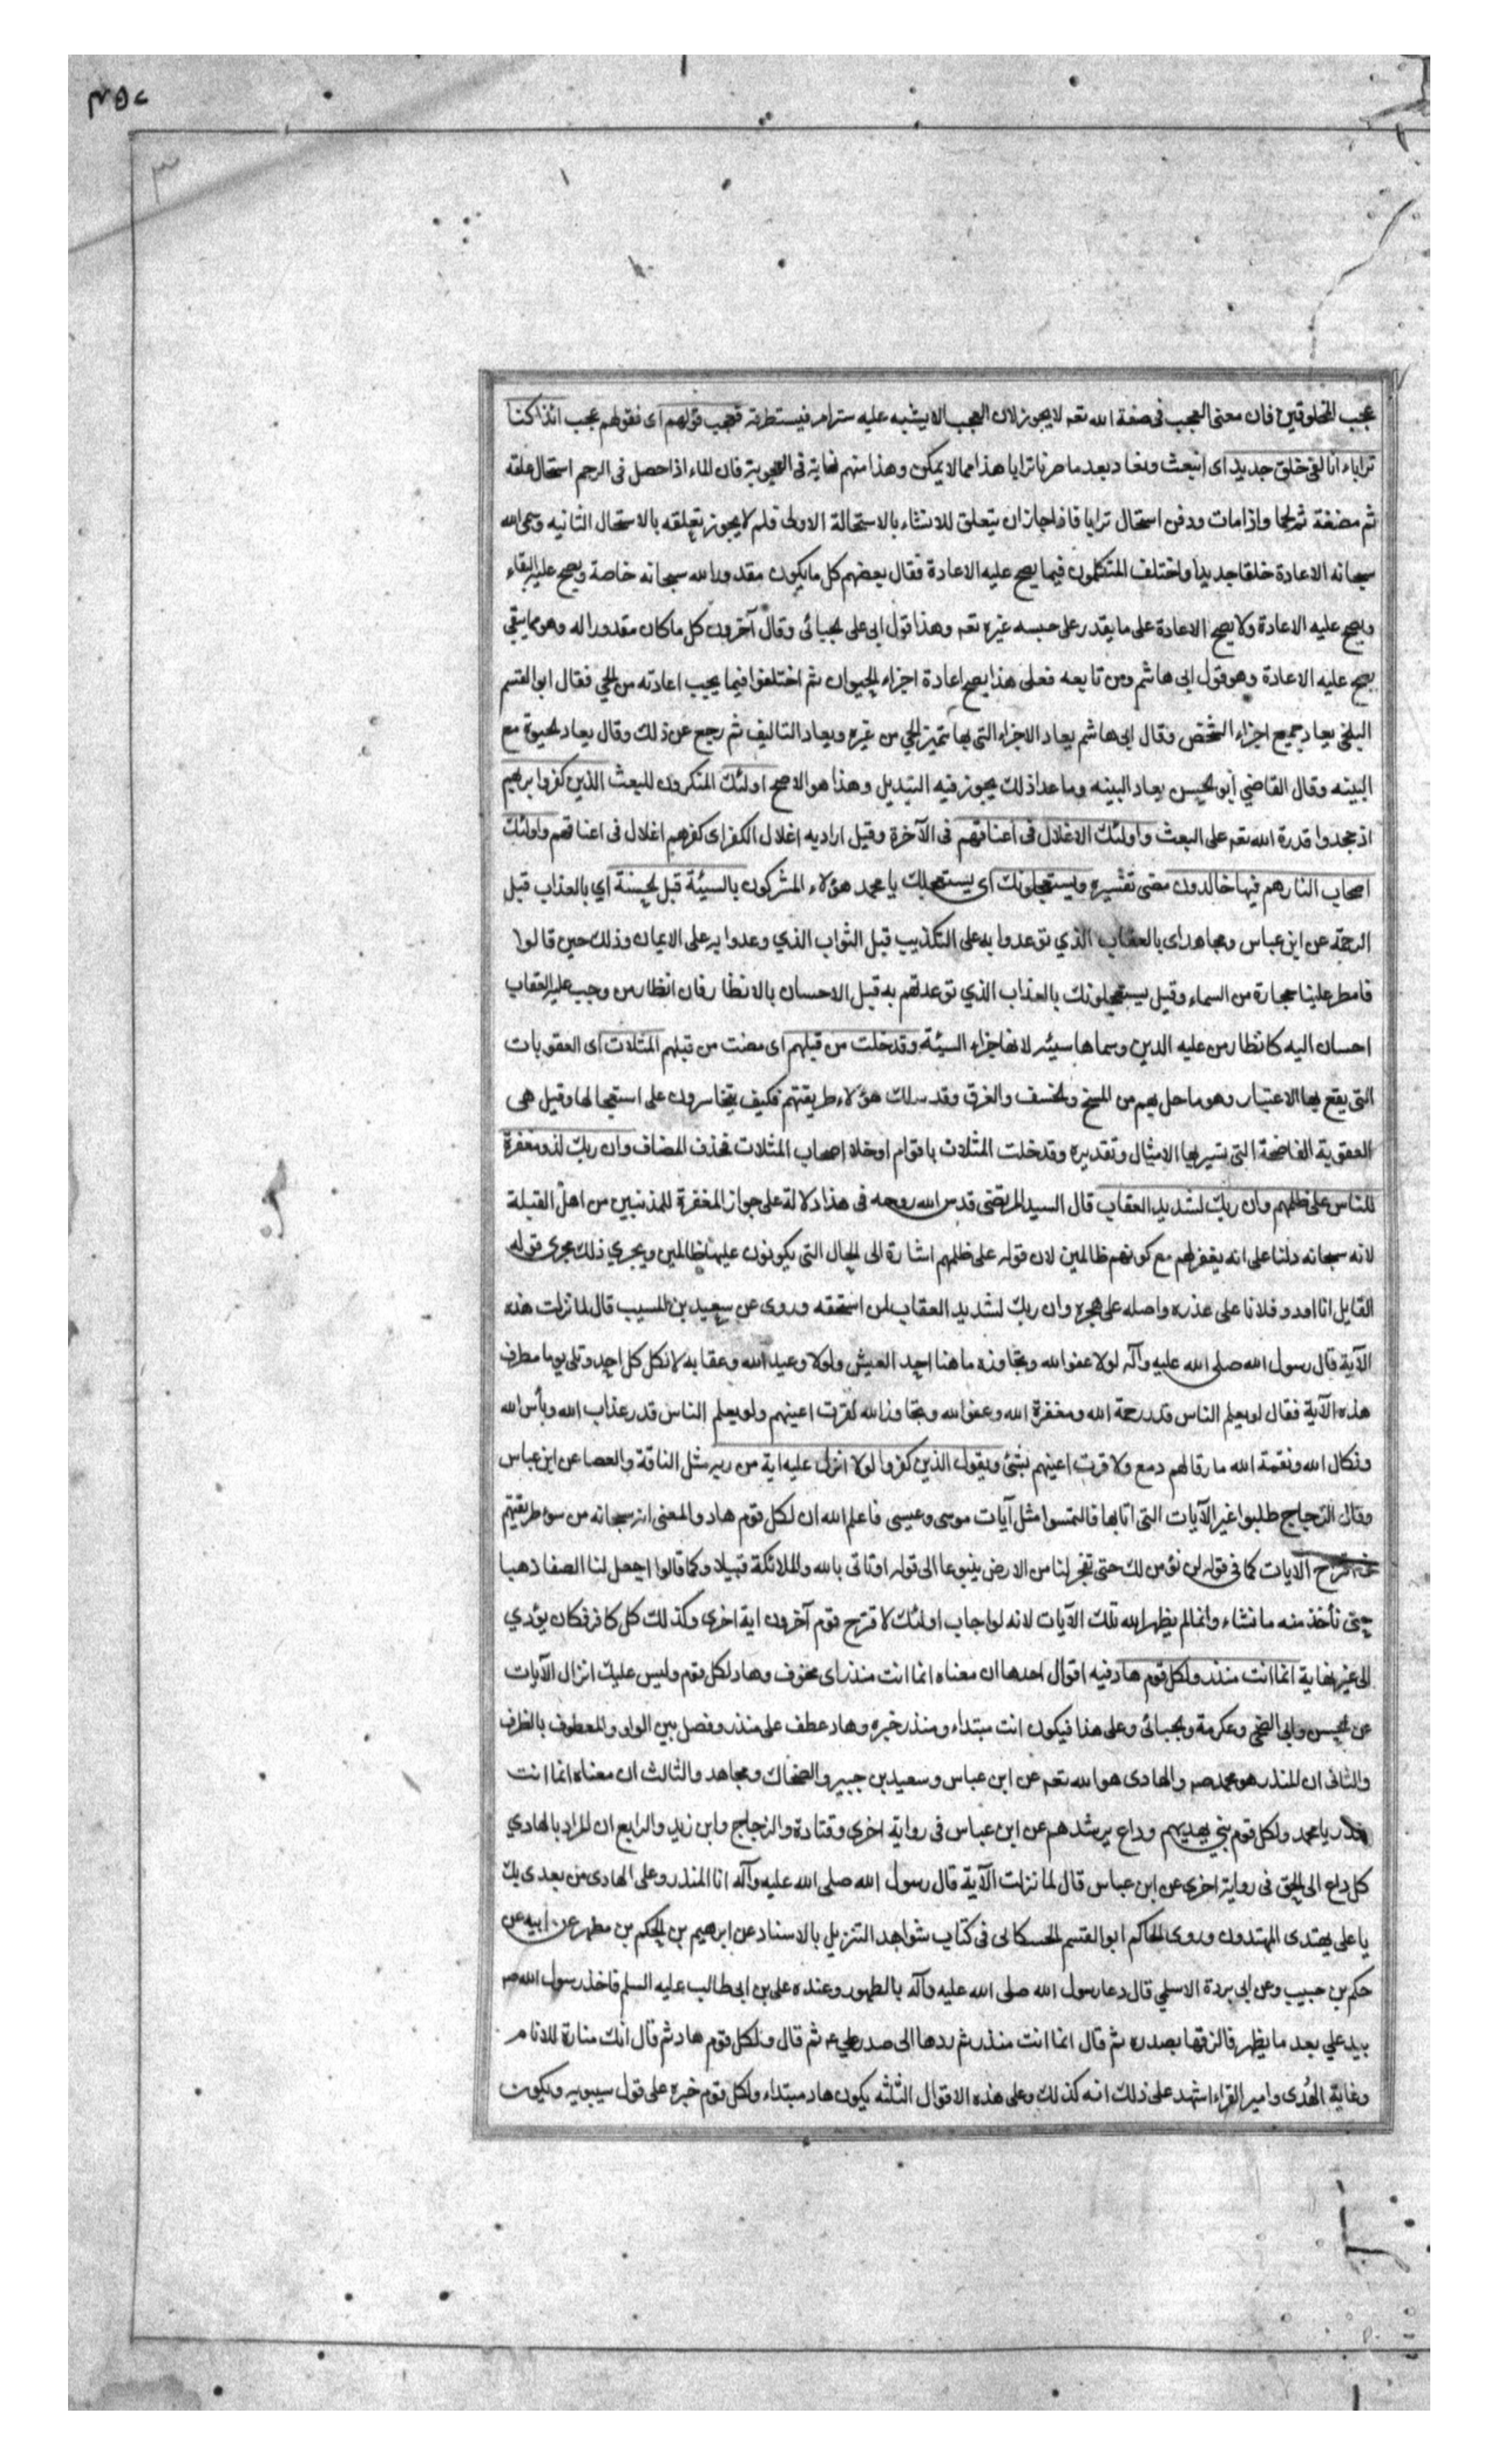 ٣
عجب المخلوقين فان معنى العجب فى صفة الله تعه لا يجوز لان العجب الا يشبه عليه ستر امر فيستطرفه فعجب قولهم اى فقولهم عجب ائذا كنا
ترابا ء انا لفى خلق جديد اى انبعث ونعاد بعد ما صرنا ترابا هذا مما لا يمكن وهذا منهم نهاية فى الاعجوبة فان الماء اذا حصل فى الرحم استحال علقة
ثم مضغة ثم لحما واذا مات ودفن استحال ترابا فاذا جاز ان يتعلق للانشاء بالاستحالة الاولى فلم لا يجوز تعلقه بالاستحال الثانيه وسمى الله
سبحانه الاعادة خلقا جديدا واختلف المتكلمون فيما يصح عليه الاعادة فقال بعضهم كل ما يكون مقدورا لله سبحانه خاصة ويصح عليه البقاء
ويصح عليه الاعادة ولا يصح الاعادة على ما يقدر على جنسه غيره تعه وهذا قول ابى على الجبائى وقال آخرون كل ما كان مقدورا له وهو مما يبقي
يصح عليه الاعادة وهو قول ابى هاشم ومن تابعه فعلى هذا يصح اعادة اجزاء الحيوان ثم اختلفوا فيما يجب اعادته من الحي فقال ابو القسم
البلخي يعاد جميع اجزاء الشخص وقال ابى هاشم يعاد الاجزاء التى بها يتميز الحي من غيره ويعاد التاليف ثم رجع عن ذلك وقال يعاد الحيوة مع
البينه وقال القاضي ابو الحسن يعاد البينه وما عدا ذلك يجوز فيه التبديل وهذا هو الاصح اولئك المنكرون للبعث الذين كفروا بربهم
اذ جحدوا قدرة الله تعه على البعث واولئك الاغلال فى اعناقهم فى الآخرة وقيل اراد به اغلال الكفر اى كفرهم اغلال فى اعناقهم واولئك
اصحاب النار هم فيها خالدون مضى تفسيره ويستعجلونك اى يستعجلك يا محمد هؤلاء المشركون بالسيئة قبل الحسنة اي بالعذاب قبل
الرحمة عن ابن عباس ومجاهد اى بالعقاب الذي توعدوا به على التكذيب قبل الثواب الذي وعدوا به على الايمان وذلك حين قالوا
فامطر علينا حجارة من السماء وقيل يستعجلونك بالعذاب الذي توعدتهم به قبل الاحسان بالانظار فان انظار من وجب عليه العقاب
احسان اليه كانظار من عليه الدين وسماها سيئه لانها جزاء السيئة وقد خلت من قبلهم اى مضت من قبلهم المثلات اى العقوبات
التى يقع بها الاعتبار وهو ما حل بهم من المسخ والخسف والغرق وقد سلك هؤلاء طريقتهم فكيف يتجاسرون على استعجالها وقيل هى
العقوبة الفاضحة التى يسير بها الامثال وتقديره وقد خلت المثلات باقوام او خلا اصحاب المثلات فحذف المضاف وان ربك لذو مغفرة
للناس على ظلمهم وان ربك لشديد العقاب قال السيد المرتضى قدس الله روحه فى هذا دلالة على جواز المغفرة للمذنبين من اهل القبلة
لانه سبحانه دلنا على انه يغفر لهم مع كونهم ظالمين لان قوله على ظلمهم اشارة الى الحال التى يكونون عليها ظالمين ويجري ذلك مجرى قوله
القايل انا اود فلانا على غدره واصله على هجره وان ربك لشديد العقاب لمن استحقه وروى عن سعيد بن المسيب قال لما نزلت هذه
الآية قال رسول الله صلى الله عليه وآله لولا عفو الله وتجاوزه ما هنا احد العيش ولولا وعيد الله وعقابه لاتكل كل احد وتلى يوما مطرف
هذه الآية فقال لو يعلم الناس قدر رحمة الله ومغفرة الله وعفو الله وتجاوز الله لقرت اعينهم ولو يعلم الناس قدر عذاب الله وبأس الله
ونكال الله ونقمة الله ما رقا لهم دمع ولا قرت اعينهم بشئ ويقول الذين كفروا لولا انزل عليه اية من ربه مثل الناقة والعصا عن ابن عباس
وقال الزجاج طلبوا غير الآيات التى اتى بها فالتمسوا مثل آيات موسى وعيسى فاعلم الله ان لكل قوم هاد والمعنى انه سبحانه من سوء طريقتهم
الآيات كما فى قوله لن نؤمن لك حتى تفجر لنا من الارض ينبوعا الى قوله او تاتى بالله والملائكة قبيلا وكما قالوا اجعل لنا الصفا ذهبا
حتى نأخذ منه ما نشاء وانما لم يظهر الله تلك الآيات لانه لو اجاب اولئك لا قترح قوم آخرون اية اخرى وكذلك كل كافر فكان يؤدي
الى غير نهاية انما انت منذر ولكل قوم هاد فيه اقوال احدها ان معناه انما انت منذر اى مخوف وهاد لكل قوم وليس عليك انزال الآيات
عن الحسن وابى الضحى وعكرمة والجبائى وعلى هذا فيكون انت مبتداء ومنذر خبره وهاد عطف على منذر وفصل بين الواو والمعطوف بالظرف
والثانى ان المنذر هو محمد صم والهادى هو الله تعه عن ابن عباس وسعيد بن جبير والضحاك ومجاهد والثالث ان معناه انما انت
منذر يا محمد ولكل قوم نبي يهديهم وداع يرشدهم عن ابن عباس فى رواية اخرى وقتادة والزجاج وابن زيد والرابع ان المراد بالهادي
كل داع الى الحق فى رواية اخرى عن ابن عباس قال لما نزلت الآية قال رسول الله صلى الله عليه وآله انا المنذر وعلى الهادى من بعدى بك
يا على يهتدى المهتدون وروى الحاكم ابو القسم الحسكانى فى كتاب شواهد التنزيل بالاسناد عن ابرهيم بن الحكم بن مظهر عن ابيه عن
حكم بن حبيب وعن ابى بردة الاسلمي قال دعا رسول الله صلى الله عليه وآله بالطهور وعنده على بن ابى طالب عليه السلم فاخذ رسول الله صم
بيد علي بعد ما يظهر فالزقها بصدره ثم قال انما انت منذر ثم ردها الى صدر علي عم ثم قال ولكل قوم هاد ثم قال انك منارة للانام
وغاية الهُدى وامير القراء اشهد على ذلك انه كذلك وعلى هذه الاقوال الثلثه يكون هاد مبتداء ولكل قوم خبره على قول سيبويه ويكون